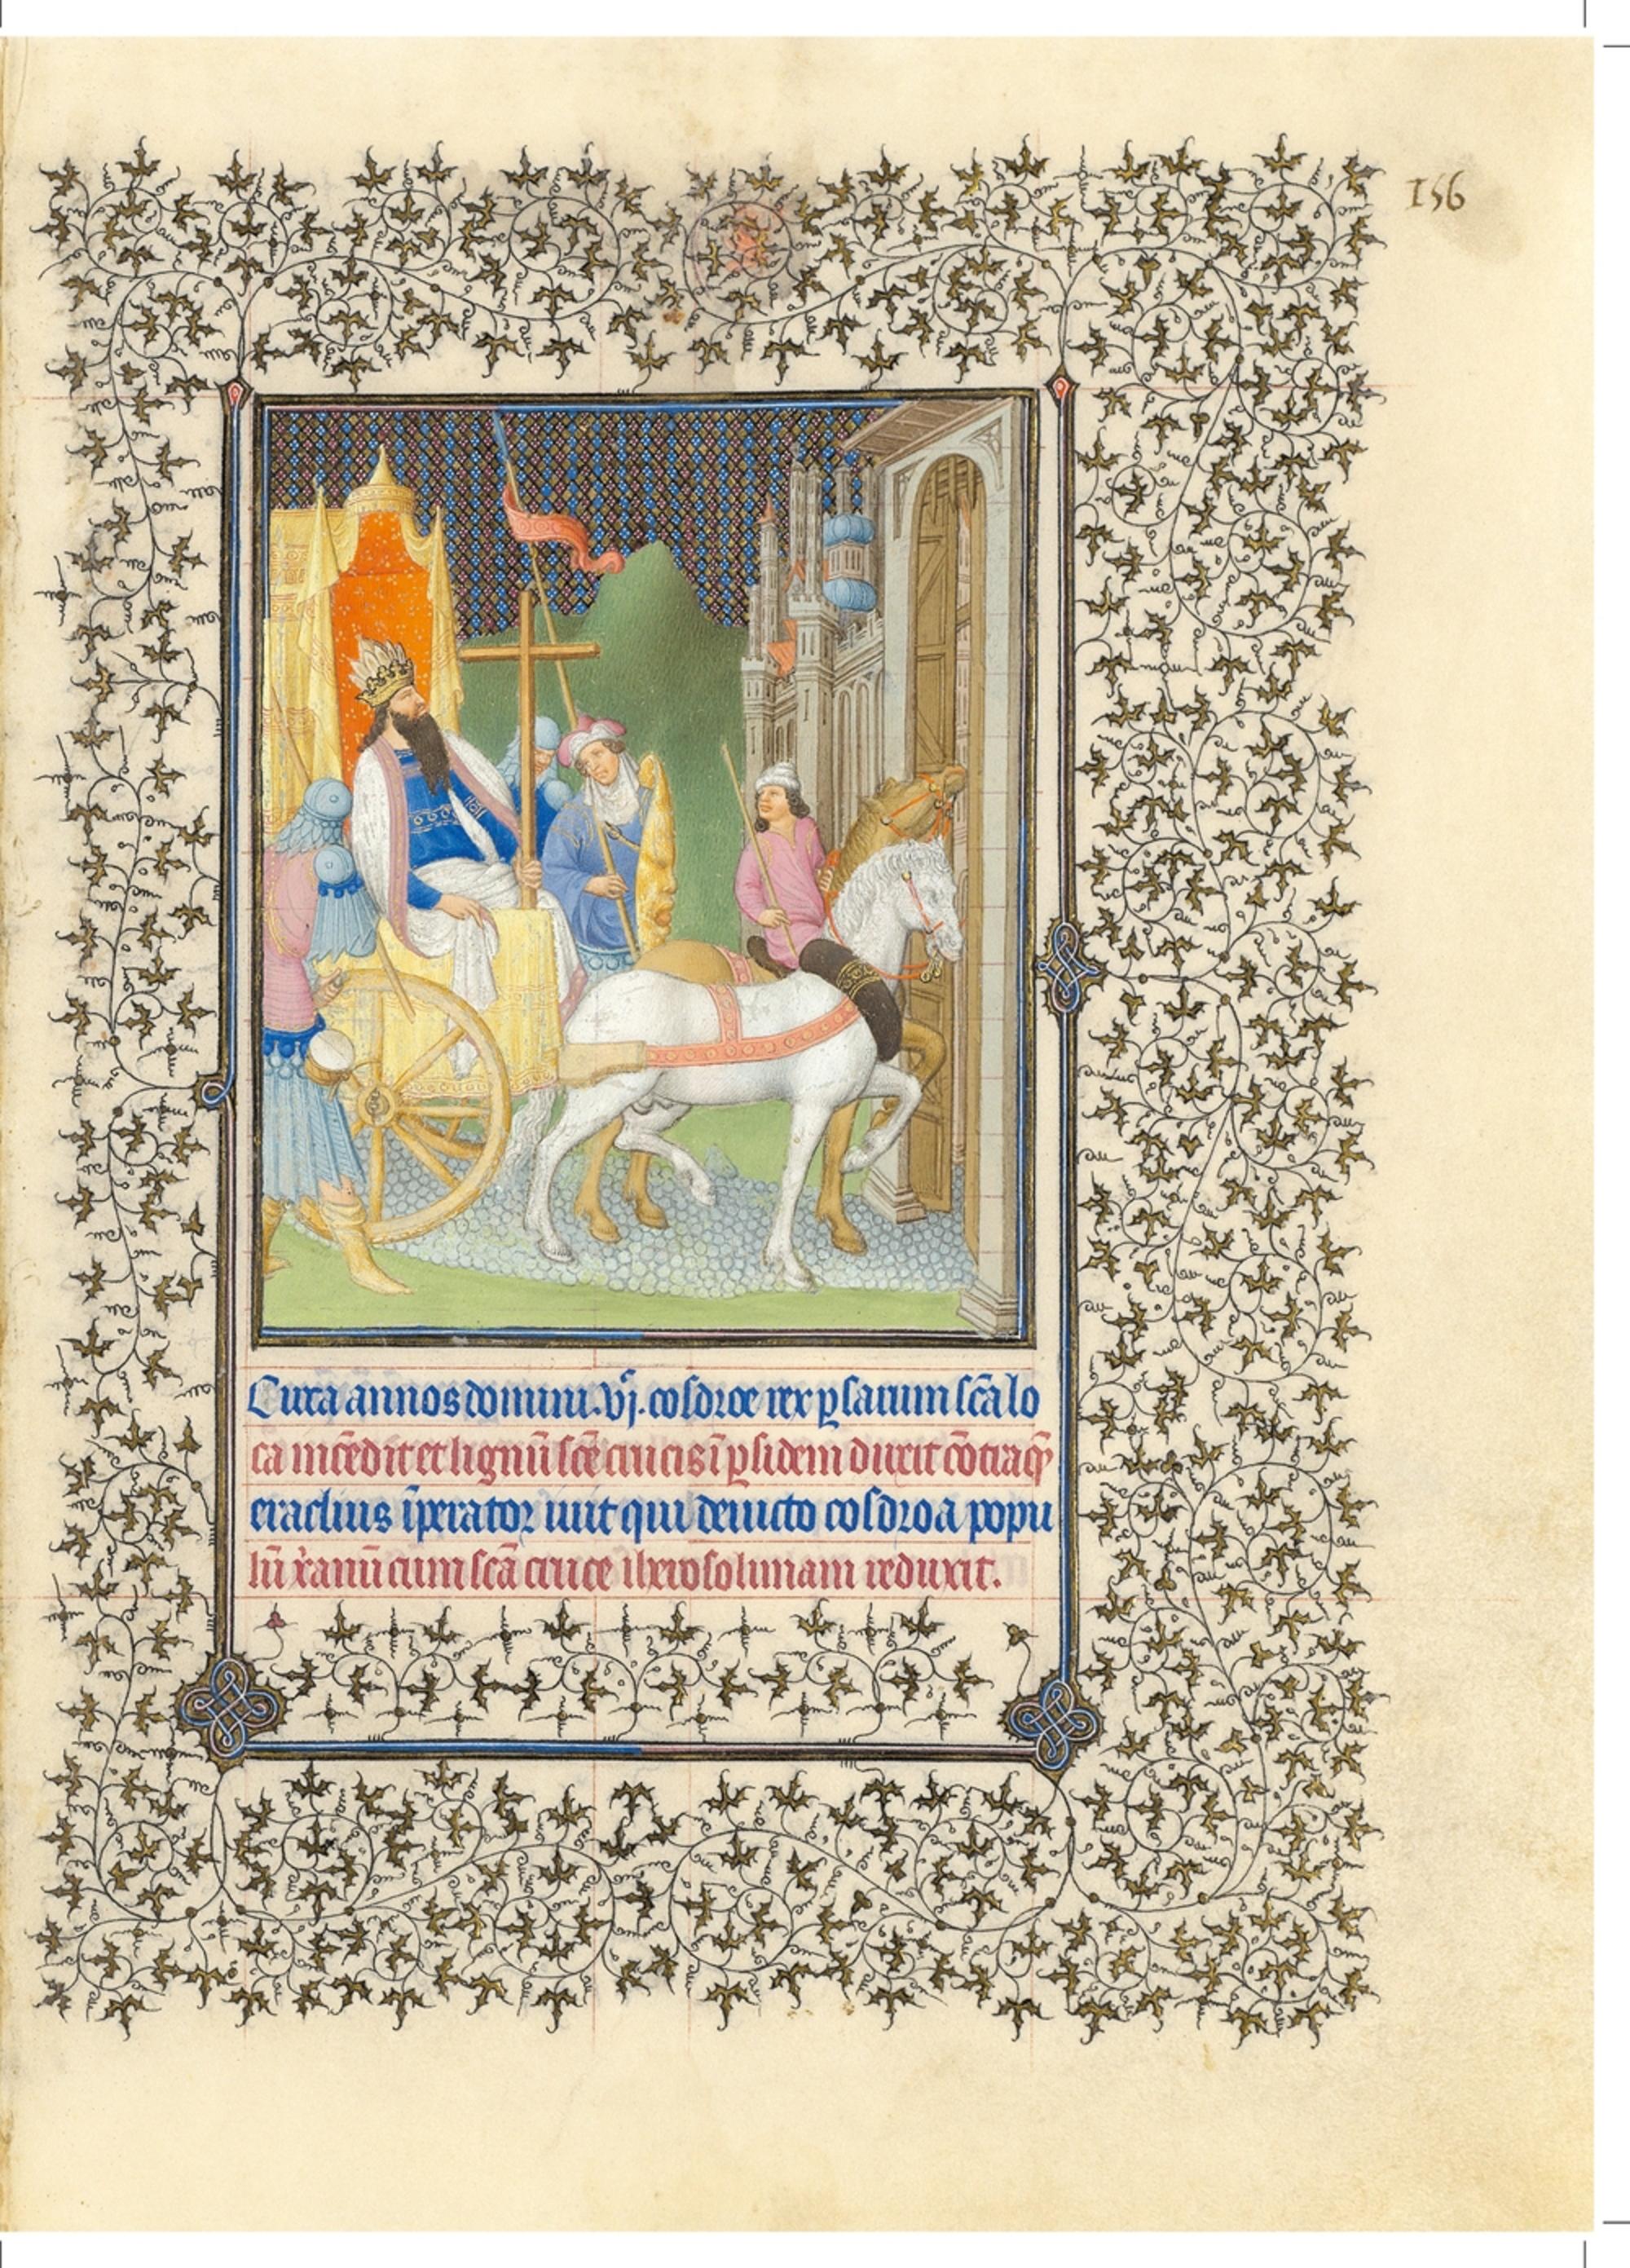 156
Circa annos domini .vjͨ. cosdroe rex ꝑsarum scā lo
ca incēdit et lignū scē crucis ī ꝑsidem duxit cōtra q̄ꝫ
eraclius īperator iuit qui deuicto cosdroa popu
lū xp̄anū cum scā cruce iherosolimam reduxit.